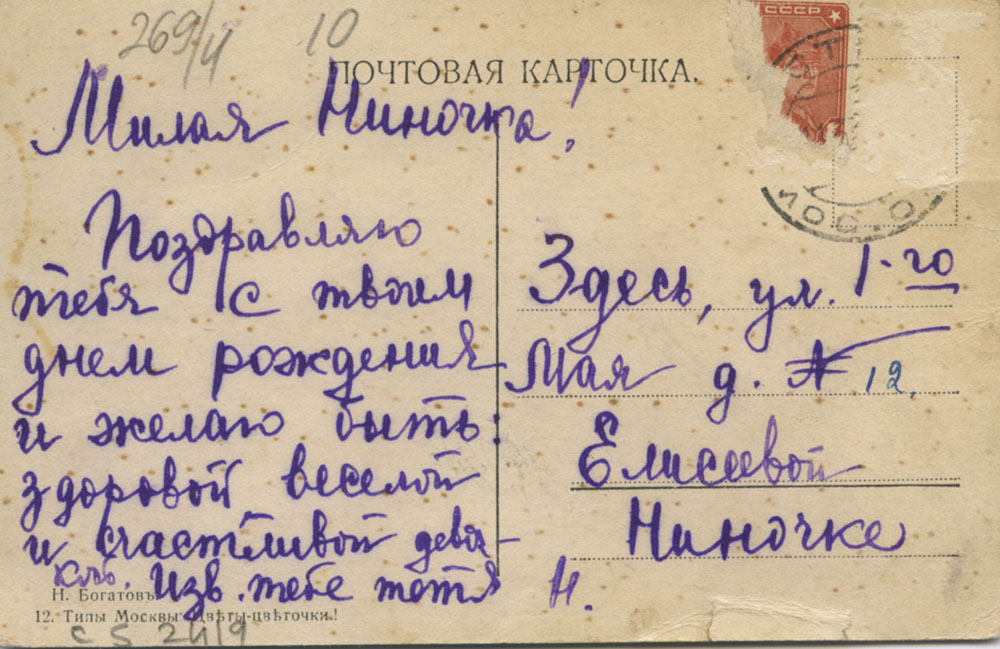 269/4 10
ПОЧТОВАЯ КАРТОЧКА.
СССР
Милая Ниночка!
Поздравляю
тебя с твоем
днем рождения
и желаю быть:
здоровой веселой
и счастливой дево-
Изв. тебе тетя Н.
Здесь, ул. 1-го
Мая д. № 12.
Елисеевой
Ниночке
Н. Богатовъ
12. Типы Москвы: Цвѣты-цвѣточки!